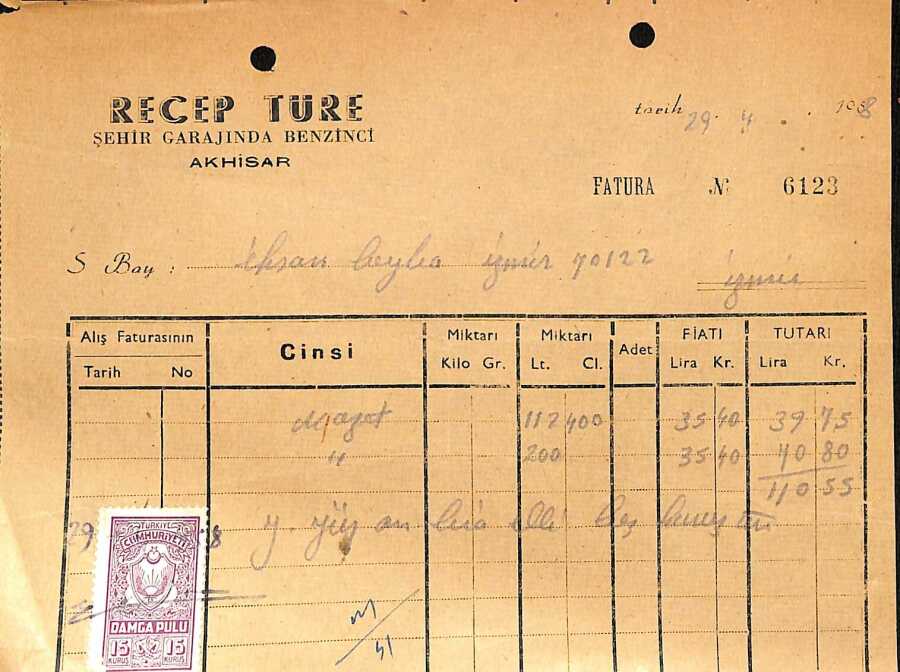 RECEP TÜRE
ŞEHİR GARAJINDA BENZİNCİ
AKHİSAR
tarih 29. 4 . 1958
FATURA № 6123
S Bay : İhsan İzmir 70122
İzmir
Alış Faturasının Cinsi Miktarı Miktarı Adet FİATI TUTARI
Tarih No Kilo Gr. Lt. Cl. Lira Kr. Lira Kr.
Mazot 112 400 35 40 39 75
" 200 35 40 70 80
110 55
29 8 Y. Yüz on lira elli beş kuruştur
TÜRKİYE
CUMHURİYETİ
DAMGA PULU
15 15
KURUŞ KURUŞ